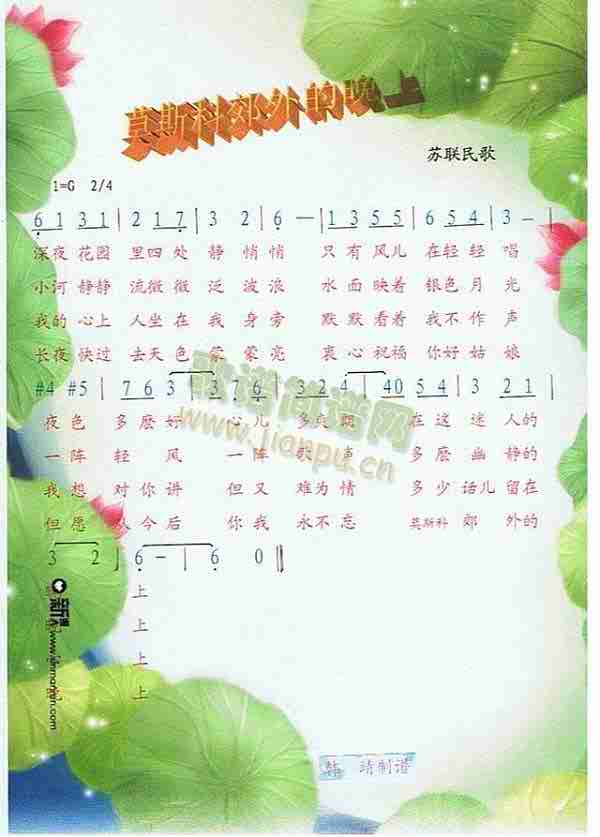 莫斯科郊外的晚上
苏联民歌
1=G 2/4
6 1 3 1 | 2 1 7 | 3 2 | 6 — | 1 3 5 5 | 6 5 4 | 3 — |
深夜 花园 里四 处 静 悄悄 只 有 风儿 在轻轻 唱
小河 静静 流微微 泛 波 浪 水 面 映着 银色 月 光
我的 心上 人坐 在 我 身 旁 默 默 看着 我不 作 声
长夜 快过 去天 色 蒙 蒙 亮 衷 心 祝福 你好 姑 娘
#4 #5 | 7 6 3 | 3 7 6 | 3 2 4 | 4 0 5 4 | 3 2 1 |
夜 色 多麽 好 心儿 多 在这 迷 人的
一 阵 轻 风 一阵 歌 声 多麽 幽 静的
我 想 对你 讲 但又 难为 情 多少 话儿 留在
但 愿 从今 后 你我 永不 忘 莫斯科 郊 外的
3 2 | 6 — | 6 0 ‖
上
上
上
上
歌谱简谱网
www.jianpu.cn
靖制谱